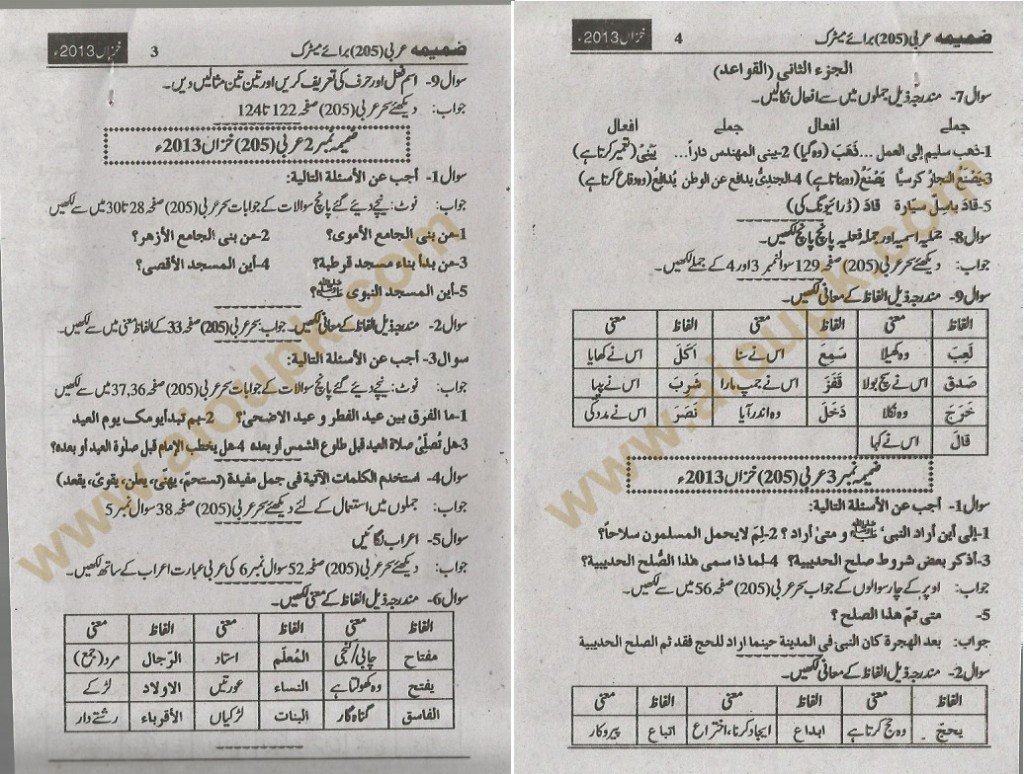 ضمیمه عربی (205) برائے میٹرک 3 خزاں 2013ء
سوال 9- اسم فعل اور حرف کی تعریف کریں اور تین تین مثالیں دیں۔
جواب: دیکھئے بحر عربی (205) صفحہ 122 تا 124
ضمیمہ نمبر 2 عربی (205) خزاں 2013ء
سوال 1- أجب عن الأسئلة التالية:
جواب: نوٹ: نیچے دیئے گئے پانچ سوالات کے جوابات بحر عربی (205) صفحہ 28 تا 30 میں سے لکھیں
1-من بنى الجامع الأموى؟ 2-من بنى الجامع الأزهر؟
3-من بدأ بناء مسجد قرطبة؟ 4-أين المسجد الأقصى؟
5-أين المسجد النبوى ﷺ؟
سوال 2- مندرجہ ذیل الفاظ کے معانی لکھیں۔ جواب: بحر عربی (205) صفحہ 33 کے الفاظ معنی میں سے لکھیں۔
سوال 3- أجب عن الأسئلة التالية:
جواب: نوٹ: نیچے دیئے گئے پانچ سوالات کے جوابات بحر عربی (205) صفحہ 37,36 میں لکھیں
1-ما الفرق بين عيد الفطر و عيد الاضحىٰ؟ 2-بم تبدأ يومك يوم العيد
3-هل تُصلِّىْ صلاة العيد قبل طلوع الشمس أو بعده 4-هل يخطب الإمام قبل صلوٰة العيد أو بعده؟
سوال 4- استخدم الكلمات الآتية فى جمل مفيدة (تستحمّ، يهنّى، يعلن، يقوىّ، يقعد)
جواب: جملوں میں استعمال کے لئے دیکھئے بحر عربی (205) صفحہ 38 سوال نمبر 5
سوال 5- اعراب لگائیں
جواب: دیکھئے بحر عربی (205) صفحہ 52 سوال نمبر 6 کی عربی عبارت اعراب کے ساتھ لکھیں۔
سوال 6- مندرجہ ذیل الفاظ کے معنی لکھیں۔
الفاظ معنی الفاظ معنی الفاظ معنی
مفتاح چابی/کنجی المُعلّم استاد الرّجال مرد (جمع)
يفتح وہ کھولتا ہے النساء عورتیں الاولاد لڑکے
الفاسق گناہ گار البنات لڑکیاں الأقرباء رشتے دار
ضمیمه عربی (205) برائے میٹرک 4 خزاں 2013ء
الجزء الثانى (القواعد)
سوال 7- مندرجہ ذیل جملوں میں سے افعال نکالیں۔
جملے افعال جملے افعال
1-ذهب سليم إلى العمل ... ذَهَبَ (وہ گیا) 2-يبنى المهندس داراً... يَبْنِىْ (تعمیر کرتا ہے)
3-يَصْنَعُ النجار كرسياً يَصْنَعُ (وہ بناتا ہے) 4-الجندىُّ يدافع عن الوطن يُدافِعُ (وہ دفاع کرتا ہے)
5-قادَ باسِلٌ سيّارة قادَ (ڈرائیونگ کی)
سوال 8- جملہ اسمیہ اور جملہ فعلیہ پانچ پانچ لکھیں۔
جواب: دیکھئے بحر عربی (205) صفحہ 129 سوال نمبر 3 اور 4 کے جملے لکھیں۔
سوال 9- مندرجہ ذیل الفاظ کے معانی لکھیں۔
الفاظ معنی الفاظ معنی الفاظ معنی
لَعِبَ وہ کھیلا سَمِعَ اس نے سنا اَكَلَ اس نے کھایا
صَدَقَ اس نے سچ بولا قَفَزَ اس نے جمپ مارا شَرِبَ اس نے پیا
خَرَجَ وہ نکلا دَخَلَ وہ اندر آیا نَصَرَ اس نے مدد کی
قالَ اس نے کہا
ضمیمہ نمبر 3 عربی (205) خزاں 2013ء
سوال 1- أجب عن الأسئلة التالية:
1-إلى أين أراد النبى ﷺ و متىٰ أراد؟ 2-لِمَ لايحمل المسلمون سلاحاً؟
3-أذكر بعض شروط صلح الحديبية؟ 4-لما ذا سمى هٰذا الصُّلح الحديبية؟
جواب: اوپر کے چار سوالوں کے جواب بحر عربی (205) صفحہ 56 میں سے لکھیں۔
5- متى تمّ هذا الصلح؟
جواب: بعد الهجرة كان النبى فى المدينة حينما اراد للحج فقد ثم الصلح الحديبية
سوال 2- مندرجہ ذیل الفاظ کے معانی لکھیں۔
الفاظ معنی الفاظ معنی الفاظ معنی
يحجّ وہ حج کرتا ہے ابداع ایجاد کرنا، اختراع اتباع پیروکار
www.aioupk.com
www.aioupk.com